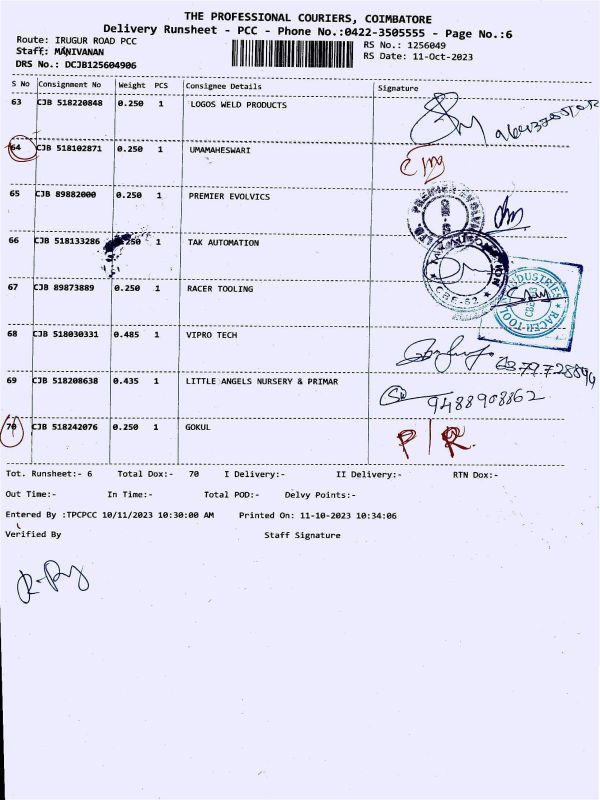 THE PROFESSIONAL COURIERS, COIMBATORE
Delivery Runsheet - PCC - Phone No.:0422-3505555 - Page No.:6
Route: IRUGUR ROAD PCC
RS No.: 1256049
Staff: MANIVANAN
RS Date: 11-Oct-2023
DRS No.: DCJB125604906
S No Consignment No Weight PCS Consignee Details Signature
63 CJB 518220848 0.250 1 LOGOS WELD PRODUCTS
64 CJB 518102871 0.250 1 UMAMAHESWARI
65 CJB 89882000 0.250 1 PREMIER EVOLVICS
66 CJB 518133286 0.250 1 TAK AUTOMATION
67 CJB 89873889 0.250 1 RACER TOOLING
68 CJB 518030331 0.485 1 VIPRO TECH
69 CJB 518208638 0.435 1 LITTLE ANGELS NURSERY & PRIMAR
9488908862
70 CJB 518242076 0.250 1 GOKUL P/R.
Tot. Runsheet:- 6 Total Dox:- 70 I Delivery:- II Delivery:- RTN Dox:-
Out Time:- In Time:- Total POD:- Delvy Points:-
Entered By :TPCPCC 10/11/2023 10:30:00 AM Printed On: 11-10-2023 10:34:06
Verified By Staff Signature